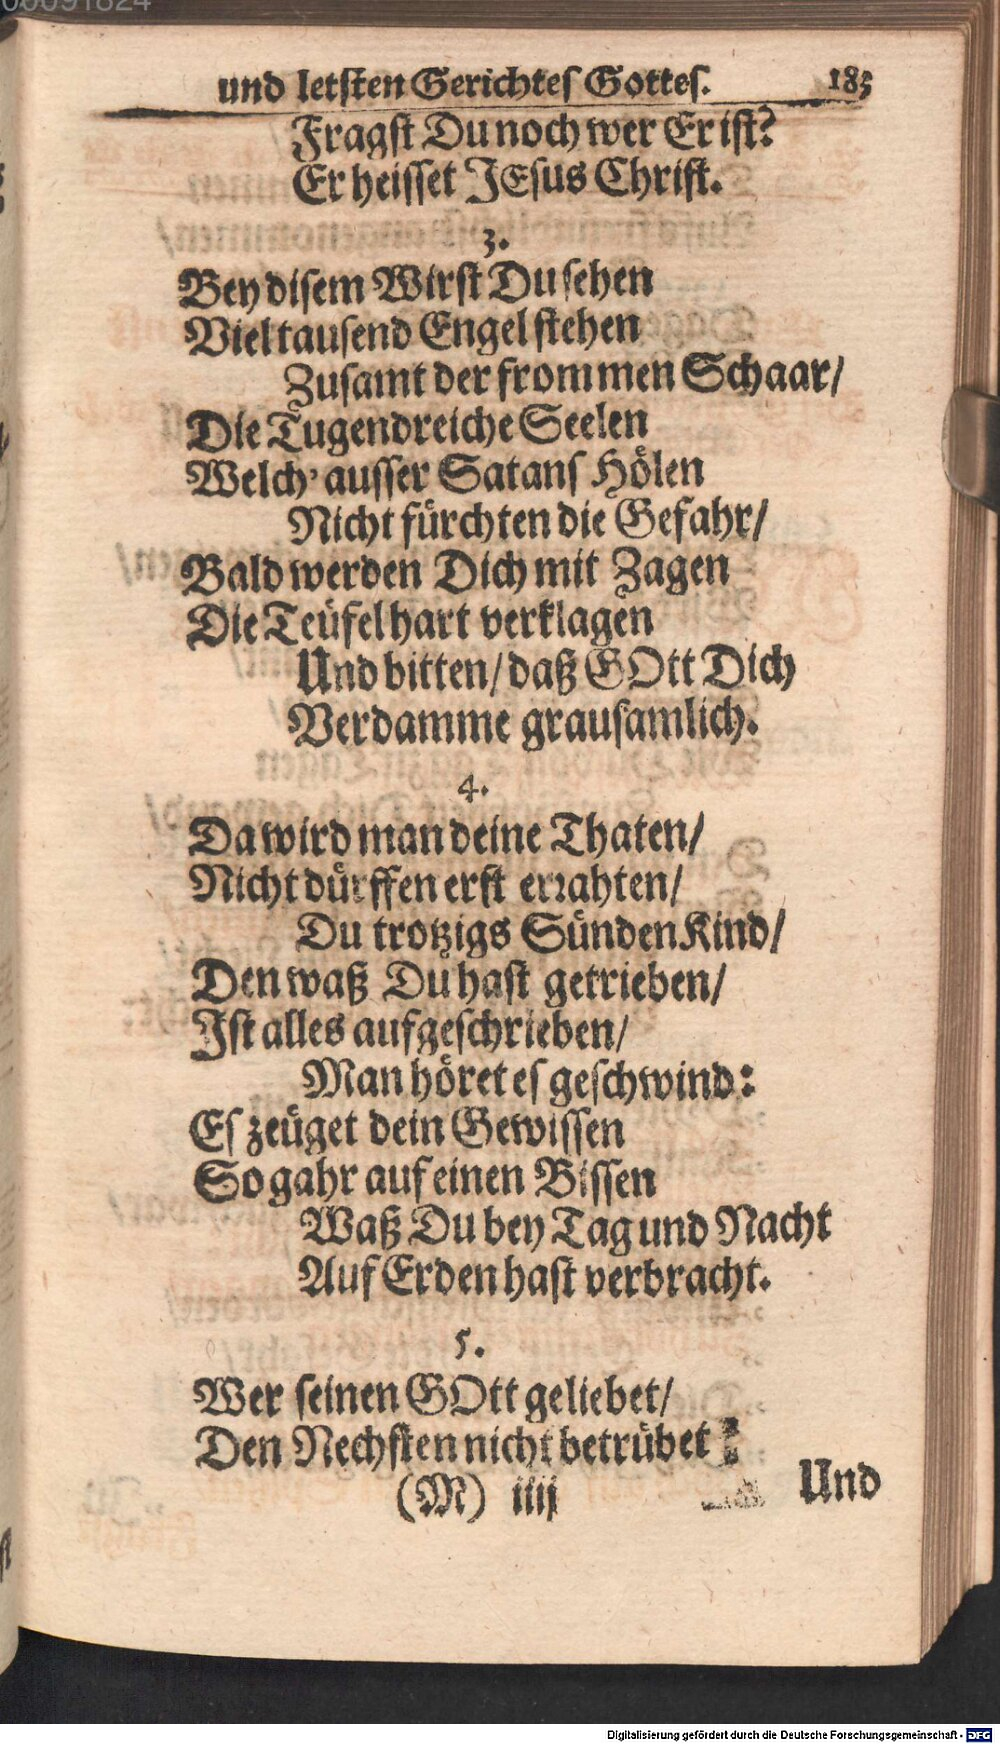 und letsten Gerichtes Gottes. 183
Fragst Du noch wer Er ist?
Er heisset JEsus Christ.
3.
Bey disem Wirst Du sehen
Viel tausend Engel stehen
Zusamt der frommen Schaar/
Die Tugendreiche Seelen
Welch' ausser Satans Hölen
Nicht fürchten die Gefahr/
Bald werden Dich mit Zagen
Die Teüfel hart verklagen
Und bitten/ daß GOtt Dich
Verdamme grausamlich.
4.
Da wird man deine Thaten/
Nicht dürffen erst errahten/
Du trotzigs Sünden Kind/
Den waß Du hast getrieben/
Ist alles aufgeschrieben/
Man höret es geschwind:
Es zeüget dein Gewissen
So gahr auf einen Bissen
Waß Du bey Tag und Nacht
Auf Erden hast verbracht.
5.
Wer seinen GOtt geliebet/
Den Nechsten nicht betrübet
(M) iiij Und
Digitalisierung gefördert durch die Deutsche Forschungsgemeinschaft - DFG